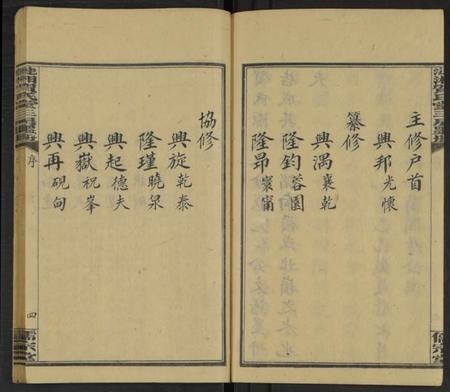 主修户首
興邦光懷
纂修
興湡襄乾
隆鈞蓉園
隆昻寰甯
協修
興旋乾泰
隆瑾曉泉
興起德夫
興嶽祝峯
興再硯甸
序
四
儒宗堂